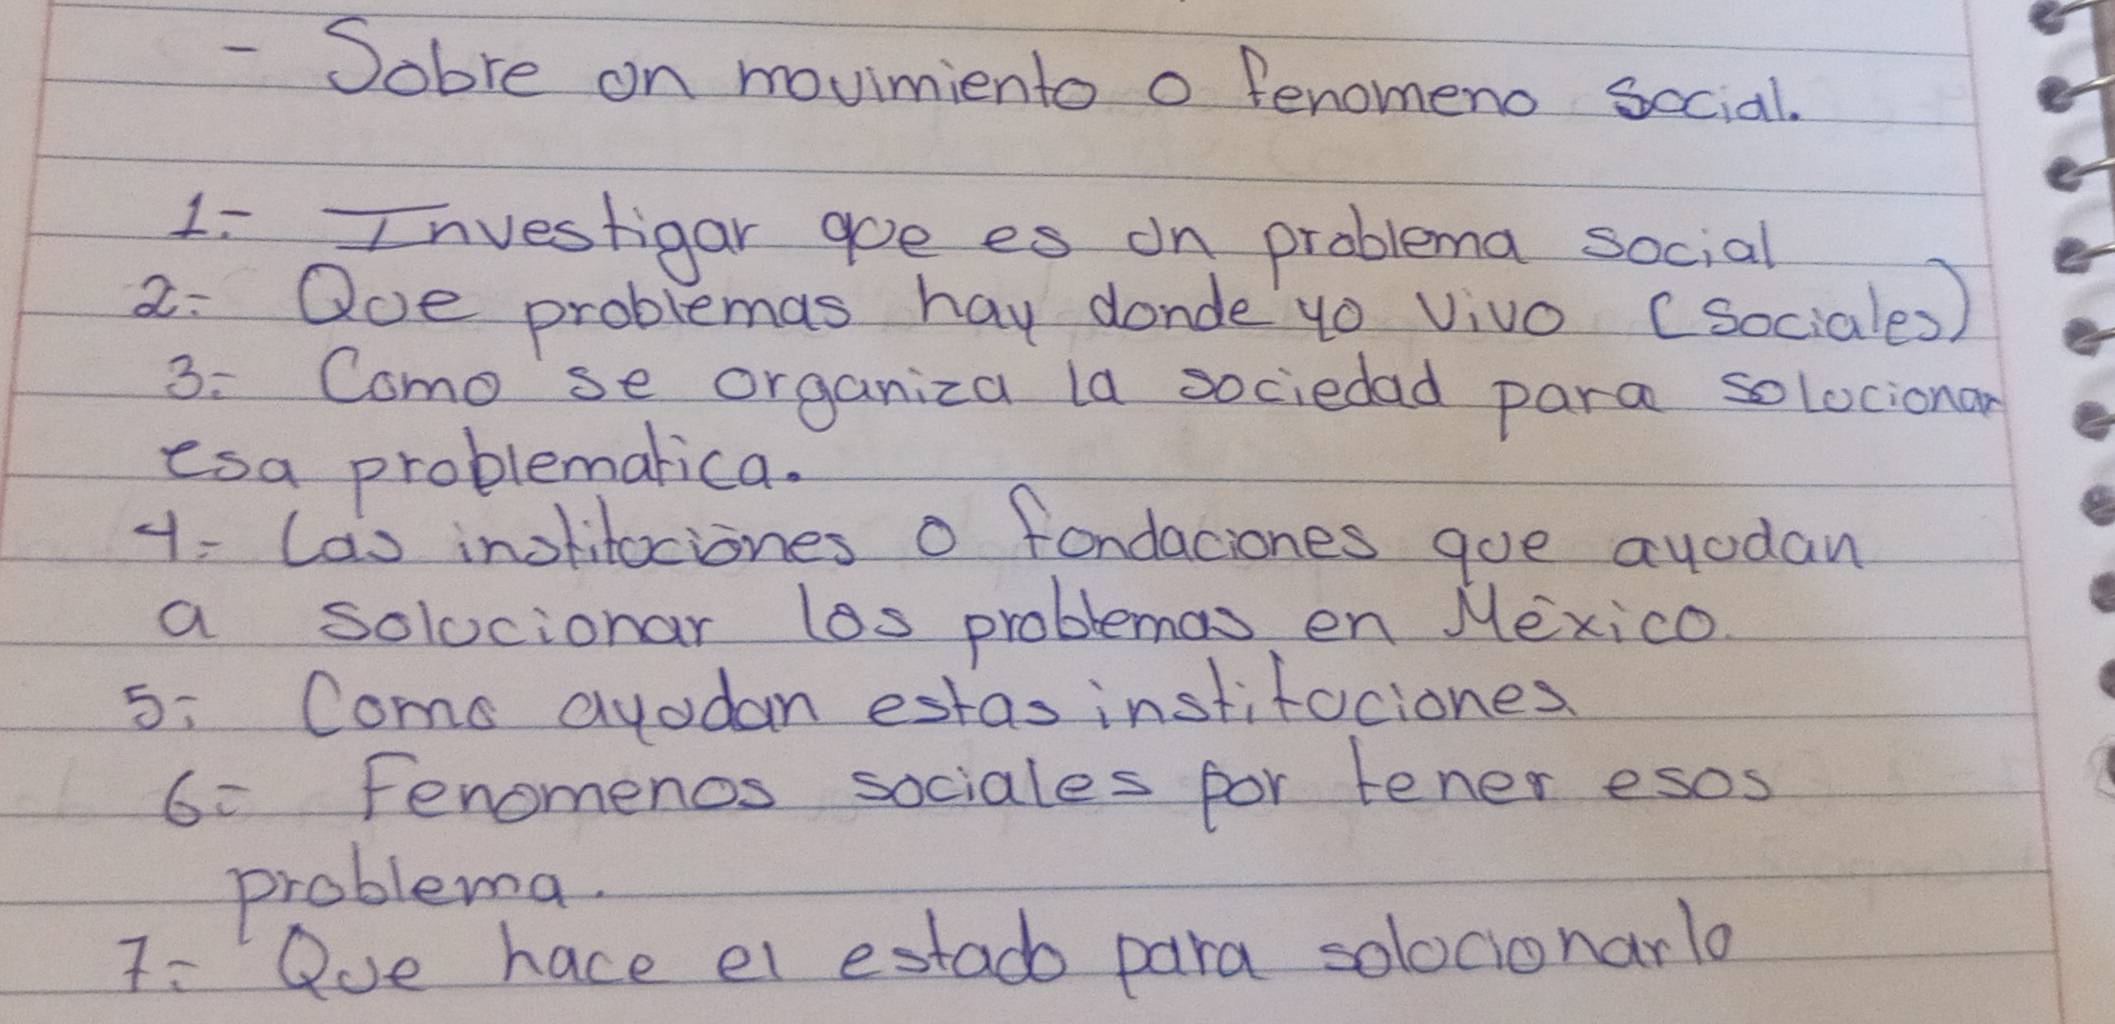 - Sobre un movimiento o fenomeno social.
1.- Investigar que es un problema social
2.- Que problemas hay donde yo vivo (sociales)
3.- Como se organiza la sociedad para solucionar
esa problematica.
4.- Las instituciones o fundaciones que ayudan
a solucionar los problemas en México.
5.- Como ayudan estas instituciones
6.- Fenomenos sociales por tener esos
problema.
7.- Que hace el estado para solucionarlo